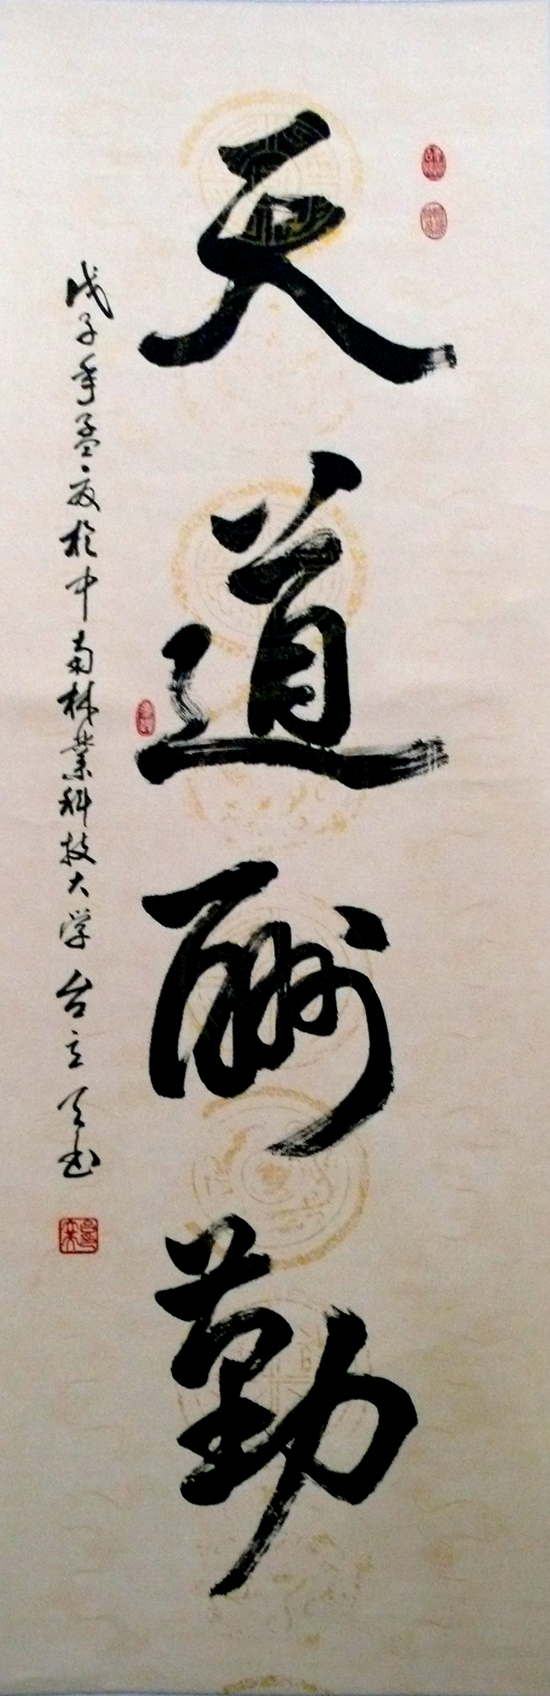 天道酬勤
戊子年孟夏於中南林業科技大学台立